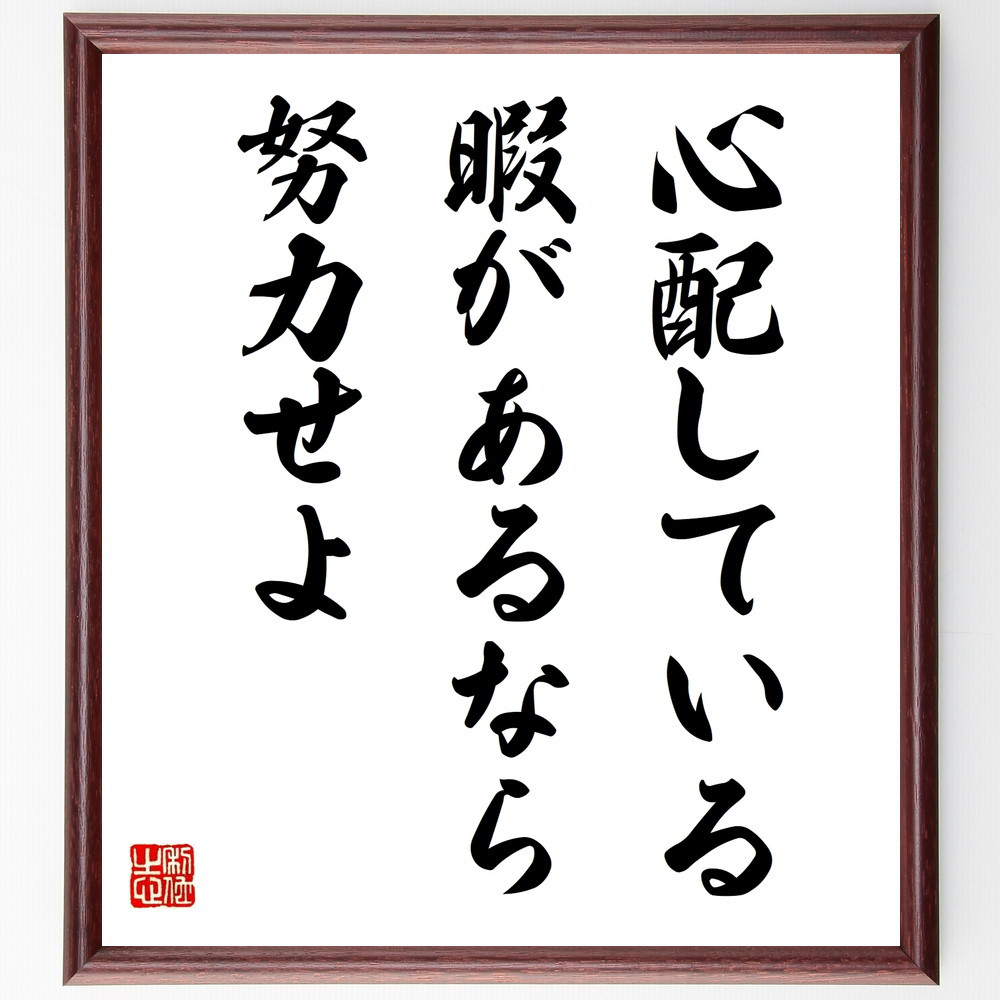 心配している
暇があるなら
努力せよ